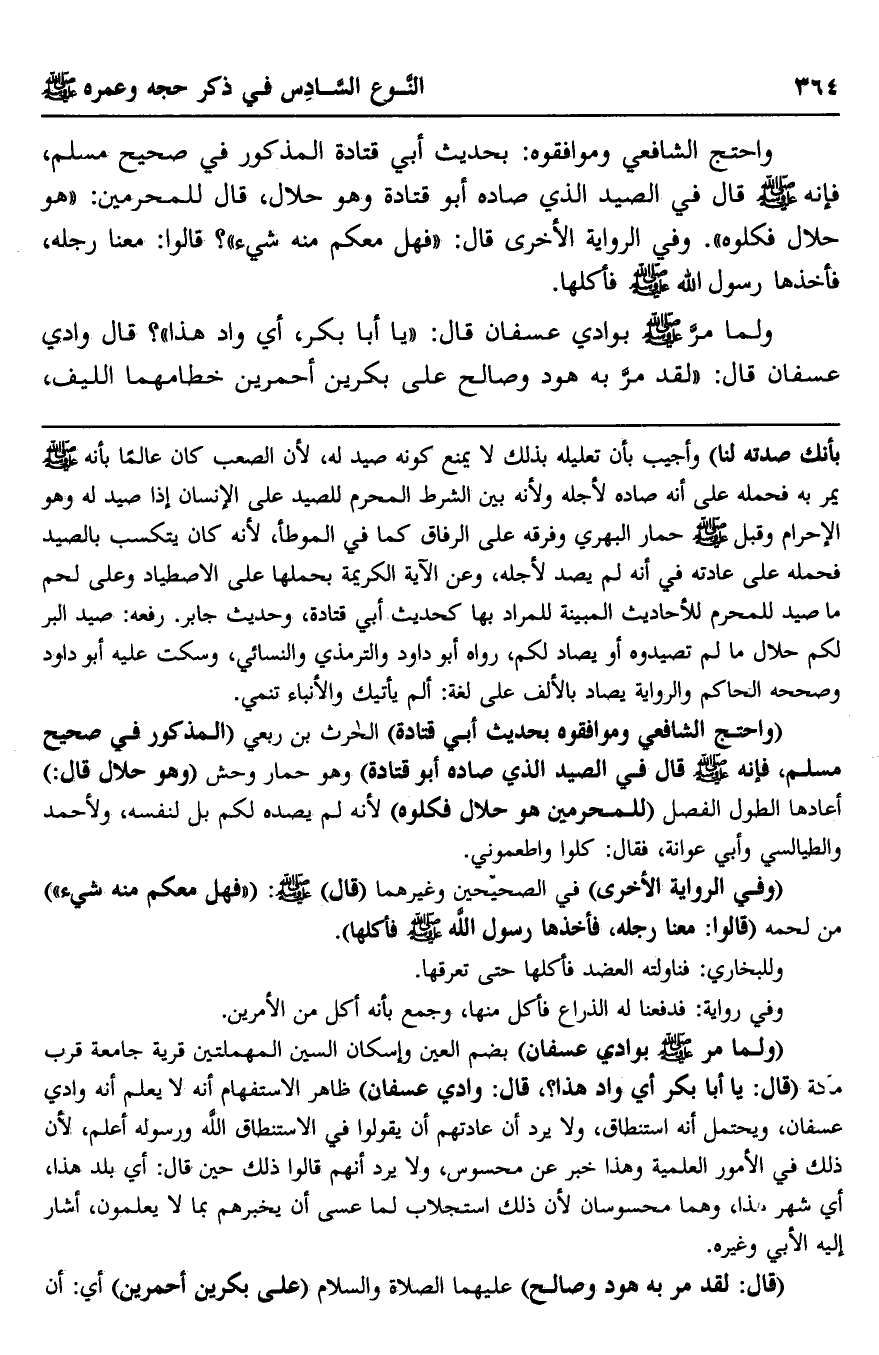 ٣٦٤ النَّوع السَّادِس في ذكر حجه وعمره ﷺ
واحتج الشافعي وموافقوه: بحديث أبي قتادة المذكور في صحيح مسلم،
فإنه ﷺ قال في الصيد الذي صاده أبو قتادة وهو حلال، قال للمحرمين: «هو
حلال فكلوه». وفي الرواية الأخرى قال: «فهل معكم منه شيء»؟ قالوا: معنا رجله،
فأخذها رسول الله ﷺ فأكلها.
ولما مرَّ ﷺ بوادي عسفان قال: «يا أبا بكر، أي واد هذا»؟ قال وادي
عسفان قال: «لقد مرَّ به هود وصالح على بكرين أحمرين خطامهما الليف،
بأنك صدته لنا) وأجيب بأن تعليله بذلك لا يمنع كونه صيد له، لأن الصعب كان عالمًا بأنه ﷺ
يمر به فحمله على أنه صاده لأجله ولأنه بين الشرط المحرم للصيد على الإنسان إذا صيد له وهو
الإحرام وقبل ﷺ حمار البهري وفرقه على الرفاق كما في الموطأ، لأنه كان يتكسب بالصيد
فحمله على عادته في أنه لم يصد لأجله، وعن الآية الكريمة بحملها على الاصطياد وعلى لحم
ما صيد للمحرم للأحاديث المبينة للمراد بها كحديث أبي قتادة، وحديث جابر. رفعه: صيد البر
لكم حلال ما لم تصيدوه أو يصاد لكم، رواه أبو داود والترمذي والنسائي، وسكت عليه أبو داود
وصححه الحاكم والرواية يصاد بالألف على لغة: ألم يأتيك والأنباء تنمي.
(واحتج الشافعي وموافقوه بحديث أبي قتادة) الحٰرث بن ربعي (المذكور في صحيح
مسلم، فإنه ﷺ قال في الصيد الذي صاده أبو قتادة) وهو حمار وحش (وهو حلال قال:)
أعادها الطول الفصل (للمحرمين هو حلال فكلوه) لأنه لم يصده لكم بل لنفسه، ولأحمد
والطيالسي وأبي عوانة، فقال: كلوا واطعموني.
(وفي الرواية الأخرى) في الصحيحين وغيرهما (قال) ﷺ: («فهل معكم منه شيء»)
من لحمه (قالوا: معنا رجله، فأخذها رسول اللَّه ﷺ فأكلها).
وللبخاري: فناولته العضد فأكلها حتى تعرقها.
وفي رواية: فدفعنا له الذراع فأكل منها، وجمع بأنه أكل من الأمرين.
(ولما مر ﷺ بوادي عسفان) بضم العين وإسكان السين المهملتين قرية جامعة قرب
مكة (قال: يا أبا بكر أي واد هذا؟، قال: وادي عسفان) ظاهر الاستفهام أنه لا يعلم أنه وادي
عسفان، ويحتمل أنه استنطاق، ولا يرد أن عادتهم أن يقولوا في الاستنطاق اللَّه ورسوله أعلم، لأن
ذلك في الأمور العلمية وهذا خبر عن محسوس، ولا يرد أنهم قالوا ذلك حين قال: أي بلد هذا،
أي شهر هذا، وهما محسوسان لأن ذلك استجلاب لما عسى أن يخبرهم بما لا يعلمون، أشار
إليه الأبي وغيره.
(قال: لقد مر به هود وصالح) عليهما الصلاة والسلام (على بكرين أحمرين) أي: أن